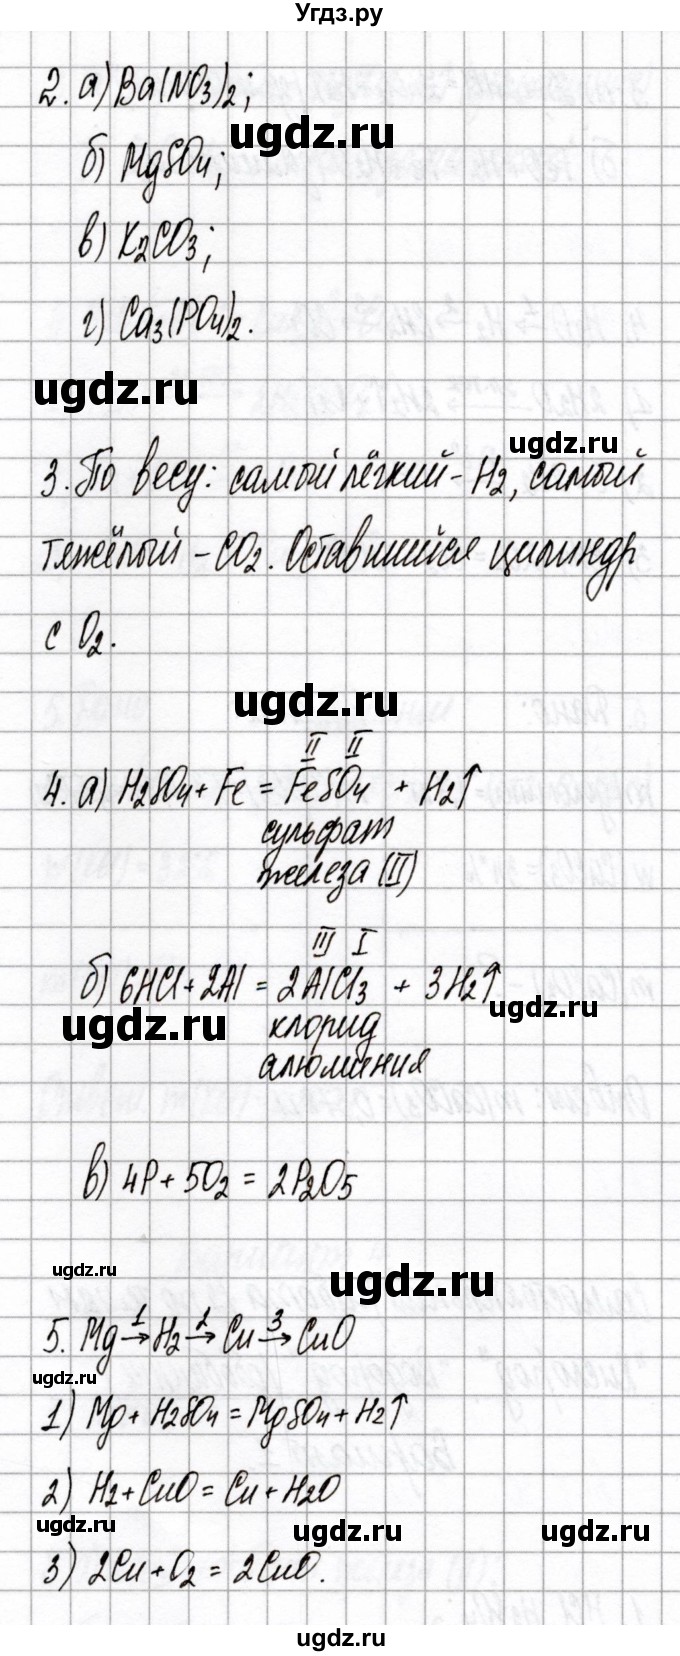 Угдз.ру
2. а) Ba(NO3)2;
ugdz.ru
б) MgSO4;
в) K2CO3;
г) Ca3(PO4)2.
ugdz.ru
ugdz.ru
3. По весу: самый лёгкий - H2, самый
тяжёлый - CO2. Оставшийся цилиндр
с O2.
ugdz.ru
II II
4. а) H2SO4 + Fe = FeSO4 + H2↑
сульфат
железа (II)
III I
б) 6HCl + 2Al = 2AlCl3 + 3H2↑
ugdz.ru
ugdz.ru
хлорид
алюминия
в) 4P + 5O2 = 2P2O5
ugdz.ru
ugdz.ru
5. Mg 1→ H2 2→ Cu 3→ CuO
ugdz.ru
1) Mg + H2SO4 = MgSO4 + H2↑
2) H2 + CuO = Cu + H2O
ugdz.ru
ugdz.ru
ugdz.ru
3) 2Cu + O2 = 2CuO.
ugdz.ru